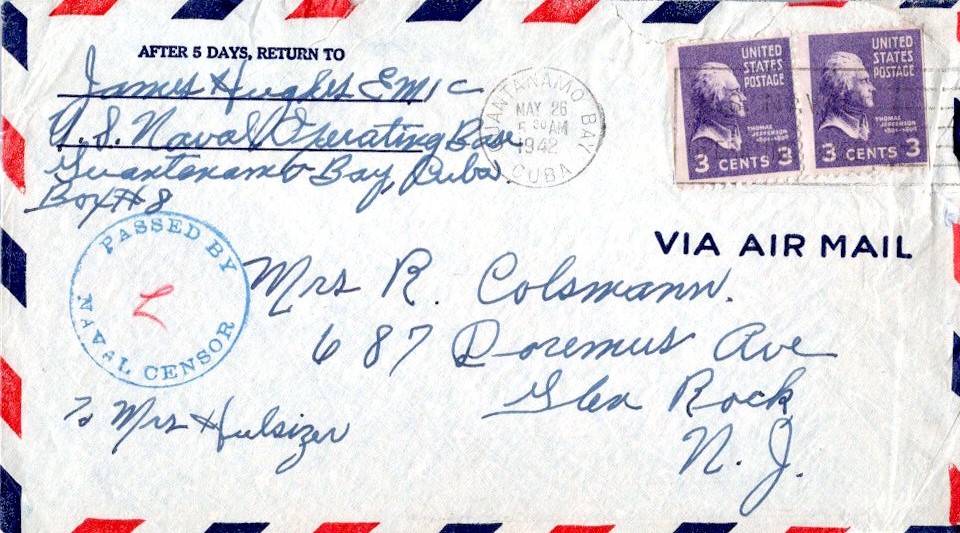 AFTER 5 DAYS, RETURN TO
James Hughes EM1c
U.S. Naval Operating Base
Guantanamo Bay, Cuba.
Box #8
GUANTANAMO BAY
MAY 26
5 30 AM
1942
CUBA
UNITED
STATES
POSTAGE
THOMAS
JEFFERSON
1801-1809
3 CENTS 3
UNITED
STATES
POSTAGE
THOMAS
JEFFERSON
1801-1809
3 CENTS 3
VIA AIR MAIL
PASSED BY
NAVAL CENSOR
Mrs R. Colsmann.
687 Doremus Ave
Glen Rock
N. J.
To Mrs Hulsizer